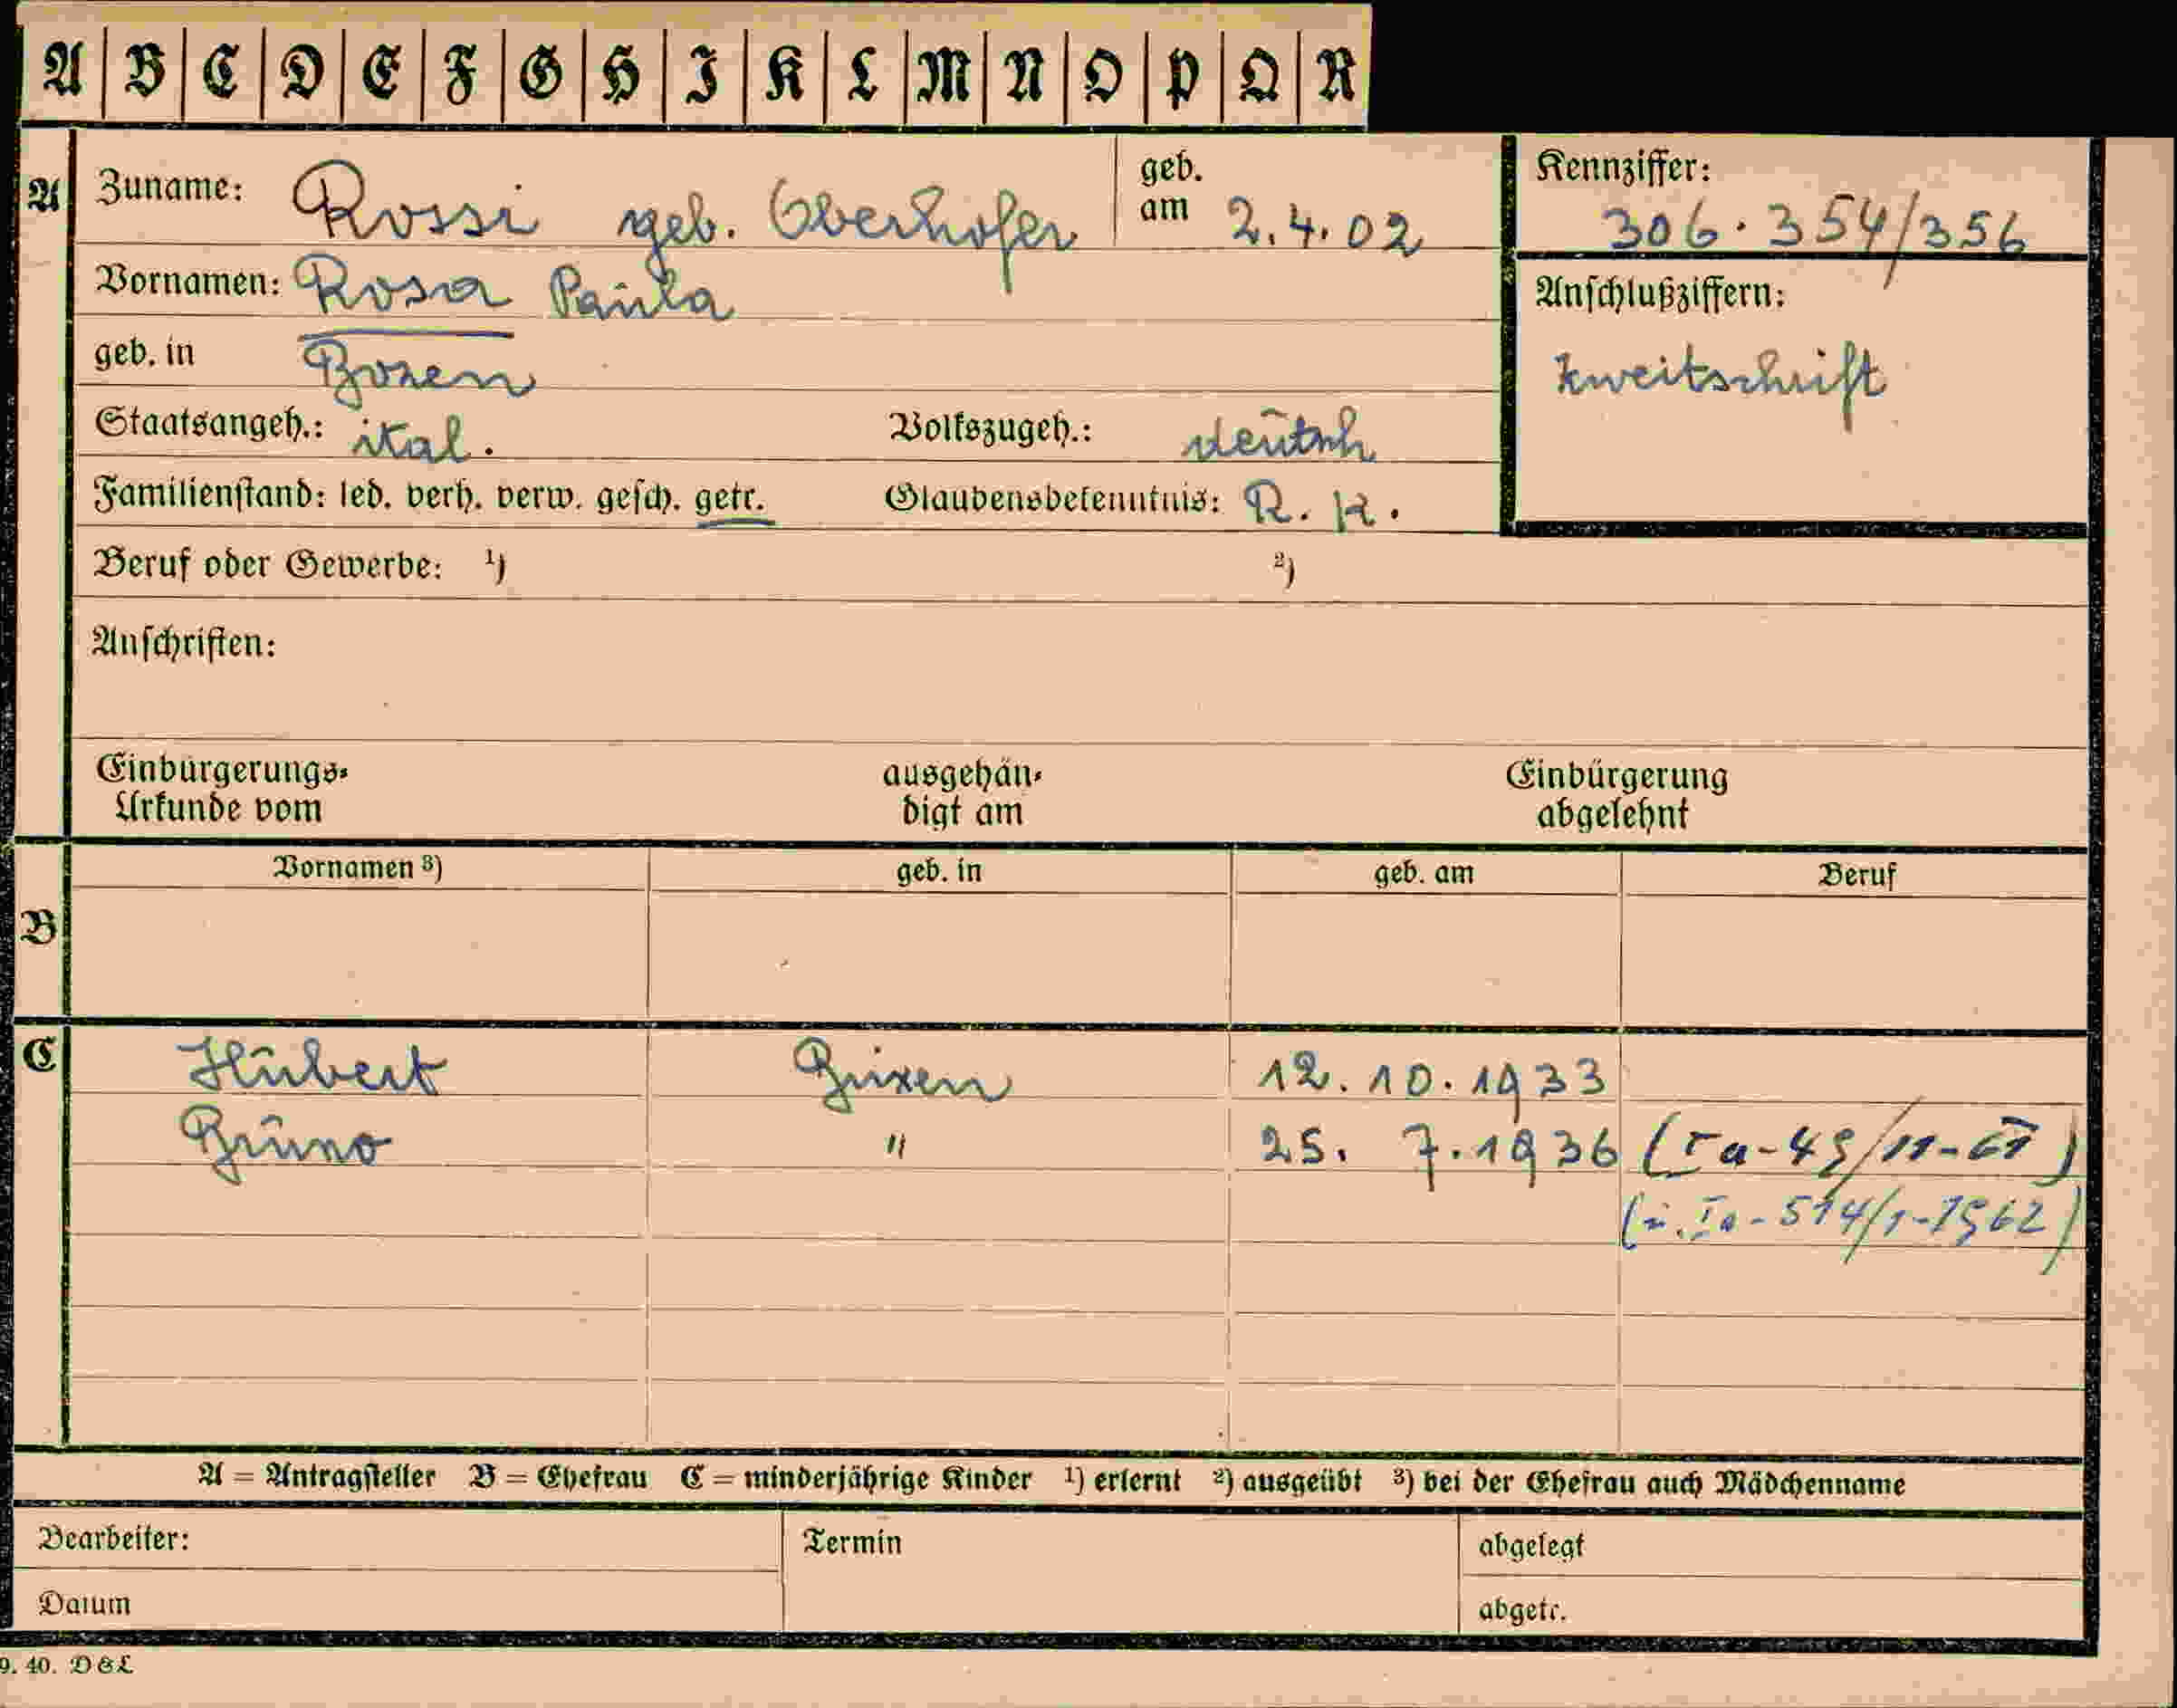 A B C D E F G H I K L M N O P Q R
A Zuname: Rossi geb. Oberhofer geb. am 2.4.02 Kennziffer: 306.354/356
Vornamen: Rosa Paula Anschlußziffern:
geb. in Bozen Zweitschrift
Staatsangeh.: ital. Volkszugeh.: deutsch
Familienstand: led. verh. verw. gesch. getr. Glaubensbekenntnis: R. K.
Beruf oder Gewerbe: 1) 2)
Anschriften:
Einbürgerungs- ausgehän- Einbürgerung
Urkunde vom digt am abgelehnt
Vornamen 3) geb. in geb. am Beruf
B
C Hubert Brixen 12.10.1933
Bruno " 25. 7.1936 (Ia-49/11-61)
(u. Ia-514/1-1962)
A = Antragsteller B = Ehefrau C = minderjährige Kinder 1) erlernt 2) ausgeübt 3) bei der Ehefrau auch Mädchenname
Bearbeiter: Termin abgelegt
Datum abgetr.
9. 40. D&L